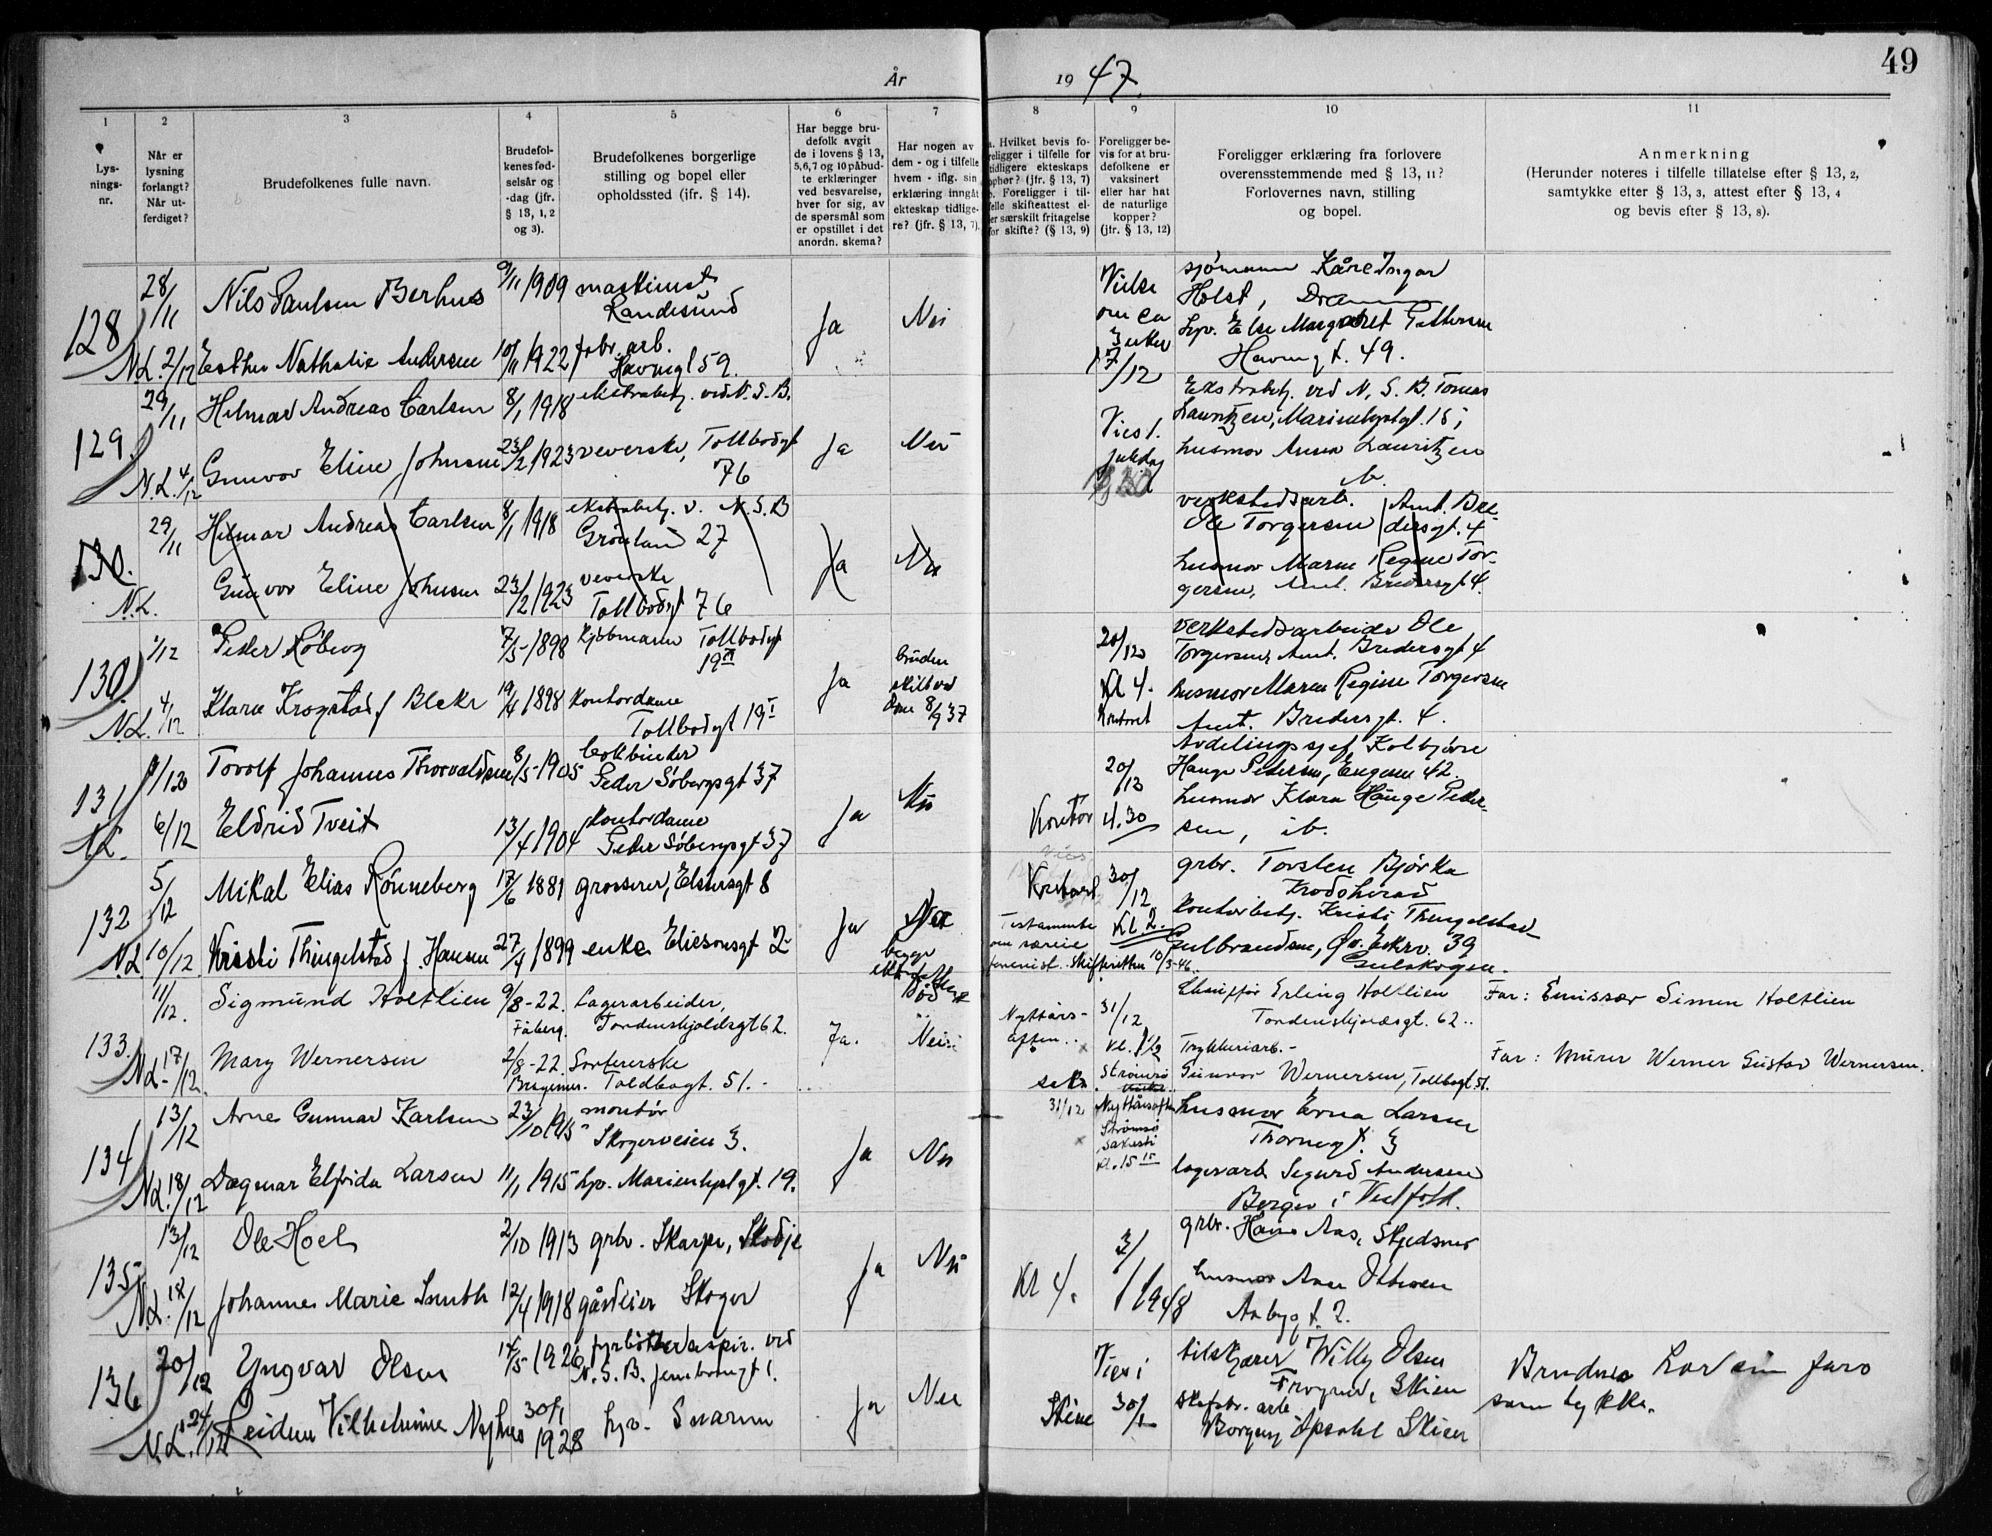 49
År 1947.
1 2 3 4 5 6 7 8 9 10 11
Lys-
nings-
nr.
Når er
lysning
forlangt?
Når ut-
ferdiget?
Brudefolkenes fulle navn.
Brudefol-
kenes fød-
selsår og
-dag (jfr.
§ 13, 1, 2
og 3).
Brudefolkenes borgerlige
stilling og bopel eller
opholdssted (jfr. § 14).
Har begge bru-
defolk avgit
de i lovens § 13,
5,6,7 og 10 påbud-
te erklæringer
ved besvarelse,
hver for sig, av
de spørsmål som
er opstillet i det
anordn. skema?
Har nogen av
dem - og i tilfelle
hvem - iflg. sin
erklæring inngåt
ekteskap tidlige-
re? (jfr. § 13, 7).
a. Hvilket bevis fo-
religger i tilfelle for
tidligere ekteskaps
ophør? (jfr. § 13, 7)
b. Foreligger i til-
felle skifteattest el-
ler særskilt fritagelse
for skifte? (§ 13, 9)
Foreligger be-
vis for at bru-
defolkene er
vaksinert
eller har hat
de naturlige
kopper?
(jfr. § 13, 12)
Foreligger erklæring fra forlovere
overensstemmende med § 13, 11?
Forlovernes navn, stilling
og bopel.
Anmerkning
(Herunder noteres i tilfelle tillatelse efter § 13, 2,
samtykke efter § 13, 3, attest efter § 13, 4
og bevis efter § 13, 8).
128
28/11
Nils Paulsen Berhus
9/11 1909
maskinist
Randesund
N.L. 2/12
Esther Nathalie Andersen
10/11 1922
fabr. arb.
Havnegt 59.
Ja
Nei
Vielse
om ca
3 uker
17/12
sjømann Kåre Ingar
Holst, Drammen
hpv. Else Margaret Pettersen
Havnegt. 49.
129.
29/11
Hilmar Andreas Carlsen
8/1 1918
ekstrabetj. ved N.S.B.
N.L. 4/12
Gunvor Eline Johnsen
23/2 1923
veverske, Tollbodgt
76
Ja
Nei
Vies 1.
juledag
Ekstrabetj. ved N.S.B. Tomas
Lauritzen, Marienlystgt. 18;
husmor Anna Lauritzen
ib.
130.
29/11
Hilmar Andreas Carlsen
8/1 1918
ekstrabetj. v. N.S.B
Grønland 27
N.L.
Gunvor Eline Johnsen
23/2 1923
veverske
Tollbodgt 76
Ja
Nei
verkstedsarb.
Ole Torgersen Amt. Bre-
dersgt. 4
husmor Maren Regine Tor-
gersen, Amt. Bredersgt 4.
130.
1/12
Peder Røberg
7/5 1898
kjøbmann Tollbodgt
19 II
N.L. 4/12
Klara Krogstad f Bleke
19/4 1898
kontordame
Tollbodgt 19 I
Ja
bruden
skilt ved
dom 8/9 37
20/12
Kl 4.
Kontoret
verkstedsarbeider Ole
Torgersen, Amt. Bredersgt 4
husmor Maren Regine Torgersen
Amt. Bredersgt. 4.
131
1/12
Torolf Johannes Thorvaldsen
8/5 1905
Peder Søbergsgt 37
N.L. 6/12
Eldrid Tveit
13/4 1904
kontordame
Peder Søbergsgt 37
Ja
Nei
Kontor
20/12
4.30
Avdelingssjef Kolbjørn
Hauge Petersen, Engene 42.
husmor Klara Hauge Peter-
sen, ib.
132
5/12
Mikal Elias Rønneberg
17/6 1881
grosserer, Elstersgt 8
N.L. 10/12
Kristi Thingelstad f. Hansen
27/4 1899
enke Eliesonsgt 2
Ja
Nei
begge
ektefeller
død
Kontoret
Testamente
om særeie
Skifteretten 10/3-46.
30/12
Kl 2.
grbr. Torsten Bjørka
Krødsherad
kontorbetj. Kristi Thingelstad
Gulbrandsen, Øv. Eikrv. 39
Gulskogen.
133.
11/12.
Sigmund Holtlien
9/8-22.
Fåberg.
Lagerarbeider,
Tordenskjoldsgt 62.
N.L. 17/12.
Mary Wernersen
2/8-22.
Bragernes.
Sortererske
Toldbogt. 51.
Ja.
Nei
Nyttårs-
aften.
sakr.
31/12
Kl. 1 1/2
Strømsø
Chauffør Erling Holtlien
Tordenskjoldsgt. 62.
Trykkeriarb.
Gunvor Wernersen, Tollbogt 51.
Far: Emissær Simen Holtlien
Far: Murer Werner Gustav Wernersen.
134
13/12
Arne Gunnar Karlsen
23/10 1915
montør
Skogerveien 3.
N.L. 18/12
Dagmar Elfrida Larsen
11/1 1915
hpv. Marienlystgt. 19.
Ja
Nei
31/12
Nyttårsaften
Strømsø
sakristi
Kl. 15 15
husmor Erna Larsen
Thornegt. 3
lagerarb. Sigurd Andersen
Berger i Vestfold.
135
13/12
Ole Hoel
2/10 1913
grbr. Skarpe, Skodje
N.L. 18/12
Johanne Marie Smith
12/4 1918
gårdeier Skoger
Ja
Nei
Kl 4.
3/1 1948
grbr. Hans Aas, Skjedsmo
husmor Aase Ottesen
Aabygt. 2.
136
20/12
Yngvar Olsen
14/5 1926
fyrbøteraspir. ved
N.S.B. Jernbanegt 1.
N.L. 24/12
Reidun Vilhelmine Nyhus
30/1 1928
hpv. Snarum
Ja
Nei
Vies i
Skien
30/1
tilskjærer Willy Olsen
Frogner, Skien
skofabr. arb.
Borgny Opsahl Skien
Brudens har sin fars
samtykke.